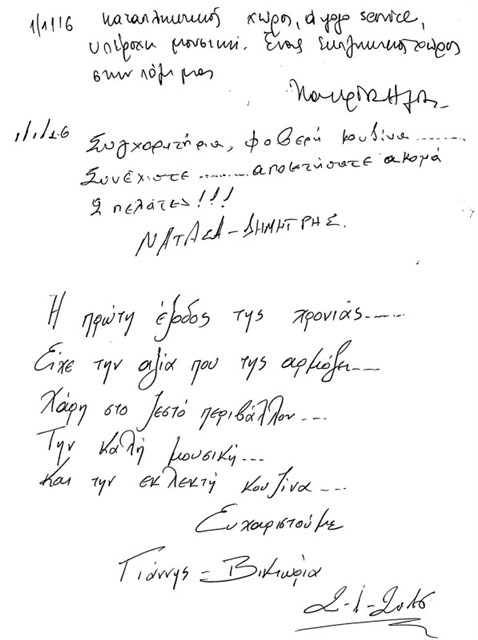 1/1/16 καταπληκτικός χώρος, άψογο service,
υπέροχη μουσική. Ένας εκπληκτικός χώρος
στην πόλη μας
1/1/16 Συγχαρητήρια, φοβερή κουζίνα.........
Συνεχίστε ......... αποκτήσατε ακομά
2 πελάτες!!!
ΝΑΤΑΣΑ - ΔΗΜΗΤΡΗΣ.
Η πρώτη έξοδος της χρονιάς.....
Είχε την αξία που της αρμόζει....
Χάρη στο ζεστό περιβάλλον....
Την καλή μουσική...
Και την εκλεκτή κουζίνα....
Ευχαριστούμε
Γιάννης - Βικτώρια
2-1-2016